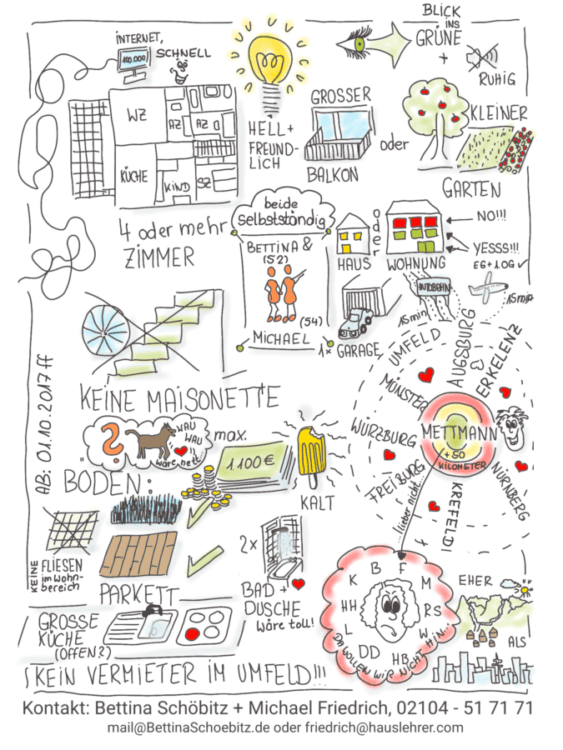 INTERNET,
SCHNELL
100.000
BLICK
INS
GRÜNE
+
RUHIG
WZ
AZ
AZ
KÜCHE
KIND
SZ
4 oder mehr
ZIMMER
HELL +
FREUND-
LICH
GROSSER
BALKON
oder
KLEINER
GARTEN
beide
selbstständig
BETTINA &
(52)
(54)
MICHAEL
HAUS
oder
WOHNUNG
NO!!!
YESSS!!!
EG + 1.OG ✓
1x GARAGE
AUTOBAHN
15min
15min
KEINE MAISONETTE
AB: 01.10.2017 ff
?
WAU
WAU
wäre nett
max.
1100 €
KALT
BÖDEN:
KEINE FLIESEN
im Wohn-
bereich
PARKETT
2x
BAD +
DUSCHE
Wäre toll!
GROSSE
KÜCHE
(OFFEN?)
UMFELD
AUGSBURG
ERKELENZ
MÜNSTER
WÜRZBURG
METTMANN
+50
KILOMETER
FREIBURG
KREFELD!
NÜRNBERG
... lieber nicht...
K B F M
HH RS
L W
DD HB
DA WOLLEN WIR NICHT HIN
EHER
ALS
!KEIN VERMIETER IM UMFELD!!!
Kontakt: Bettina Schöbitz + Michael Friedrich, 02104 - 51 71 71
mail@BettinaSchoebitz.de oder friedrich@hauslehrer.com